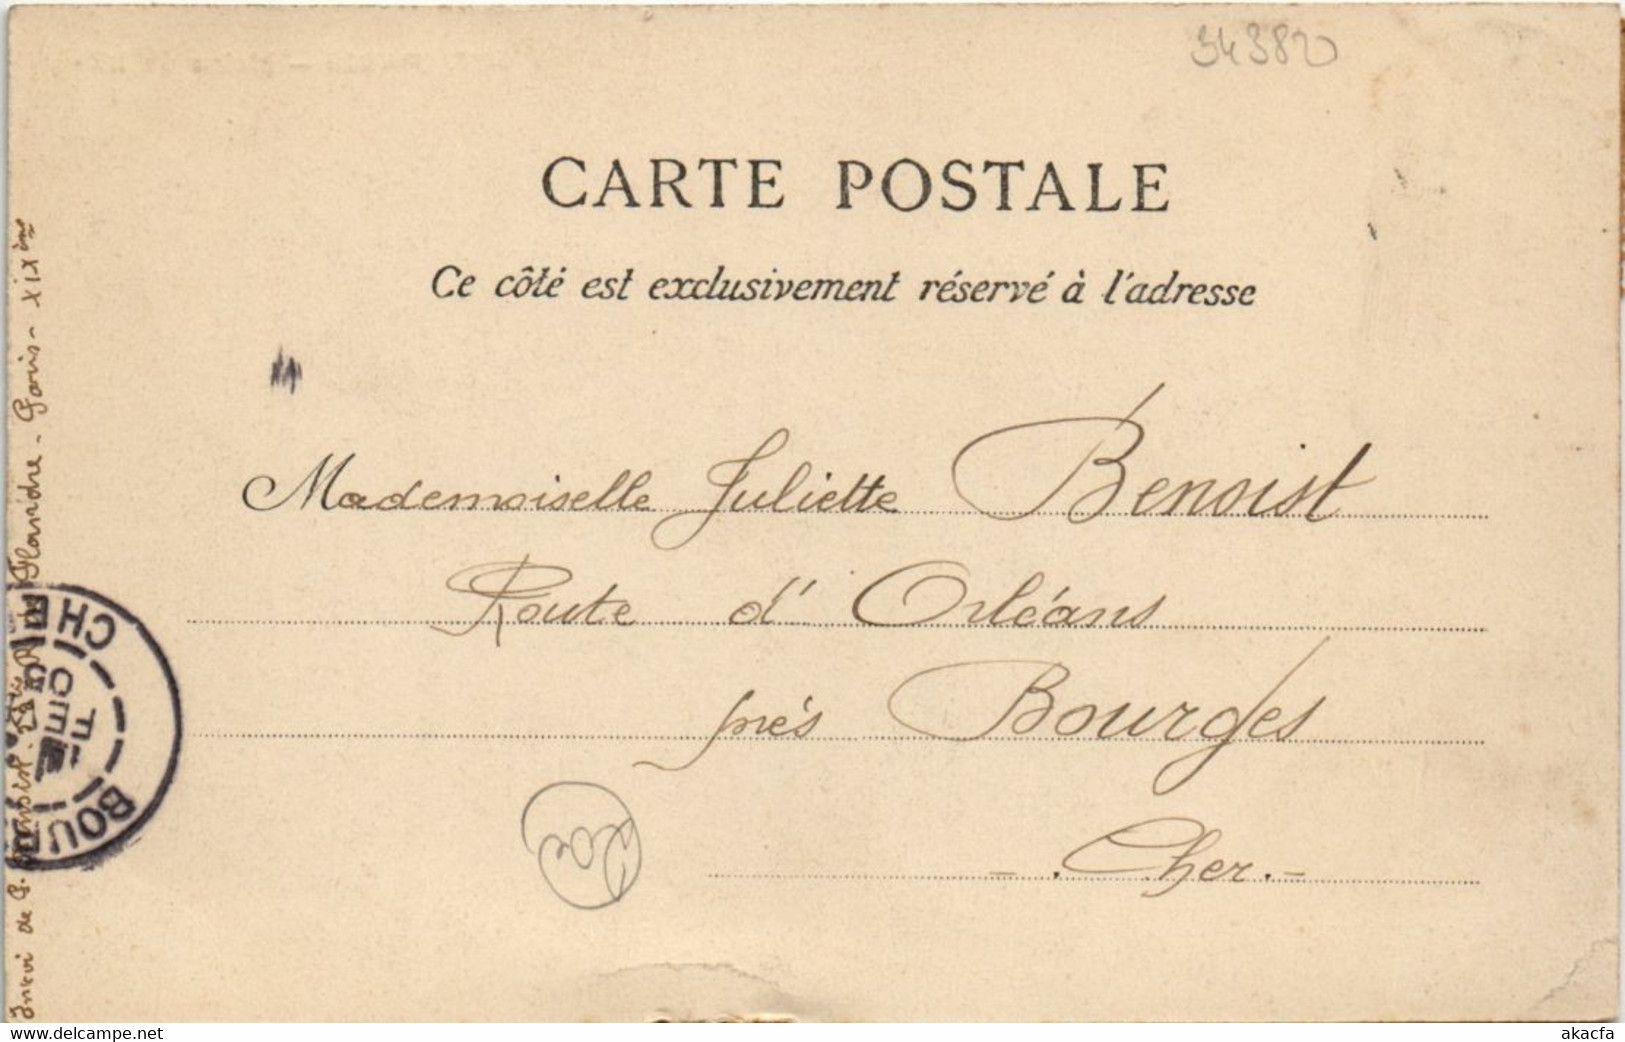 34382
CARTE POSTALE
Ce côté est exclusivement réservé à l'adresse
Mademoiselle Juliette Benoist
Route d'Orléans
près Bourges
-. Cher.-
de G. Flandre - Paris - XIXème
CHER
BOUR
akacfa
www.delcampe.net